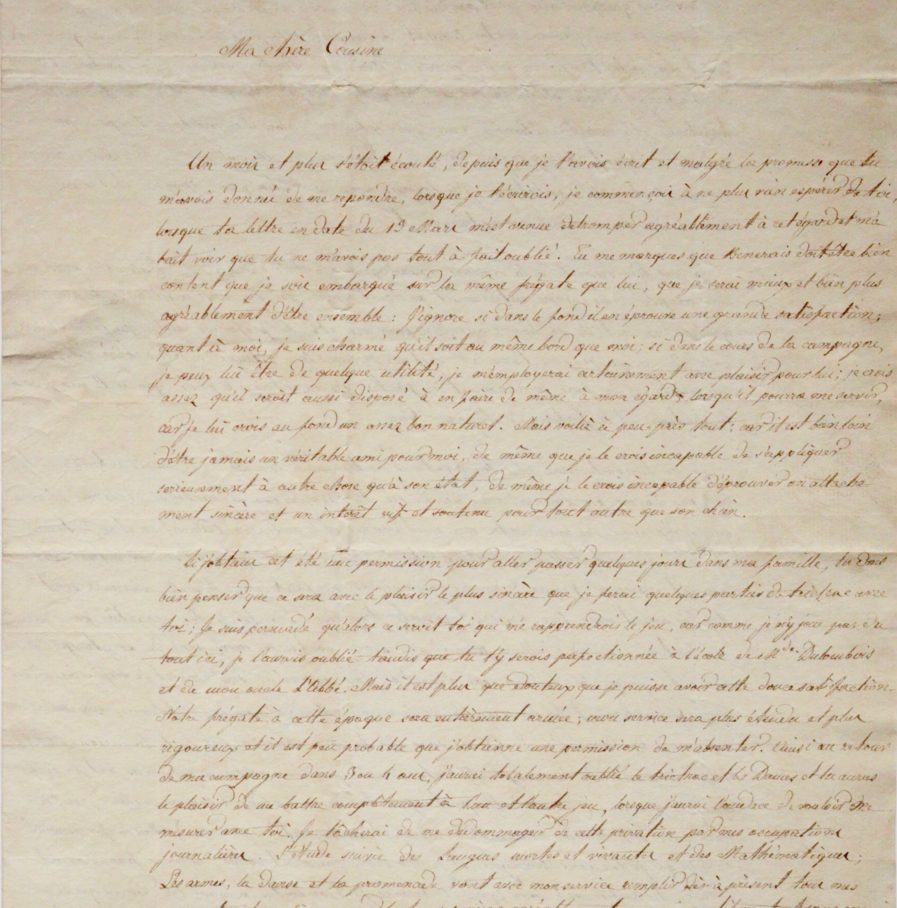 Ma chère Cousine
Un mois et plus s'étoit écoulé, depuis que je t'avois écrit et malgré la promesse que tu
m'avois donnée de me repondre, lorsque je t'écrirois, je commençai à ne plus rien espérer de toi,
lorsque ta lettre en date du 19 Mars m'est venue detromper agréablement à cet égard et m'a
fait voir que tu ne m'avois pas tout à fait oublié. Tu me marques que Benerais doit être bien
content que je sois embarqué sur la même frégate que lui, que je serai mieux et bien plus
agréablement d'être ensemble : J'ignore si dans le fond il en éprouve une grande satisfaction ;
quant à moi, je suis charmé qu'il soit au même bord que moi ; si dans le cours de la campagne,
je peux lui être de quelque utilité, je m'employerai avec plaisir pour lui ; je crois
assez qu'il seroit aussi disposé à en faire de même à mon égard, lorsqu'il pourra me servir,
car je lui crois au fond un assez bon naturel. Mais voilà à peu près tout ; car il est bien loin
d'être jamais un véritable ami pour moi, de même que je le crois incapable de s'appliquer
serieusement à autre chose qu'à son état, de même je le crois incapable d'éprouver un attache
ment sincère et un interêt vif et soutenu pour tout autre que son chien.
Si j'obtiens cet été une permission pour aller passer quelques jours dans ma famille, tu dois
bien penser que ce sera avec le plaisir le plus sincère que je ferai quelques parties de trictrac avec
toi ; Je suis persuadé qu'alors ce seroit toi qui me rapprendrois le jeu, car comme je n'y joue pas du
tout ici, je l'aurais oublié tandis que tu t'y serois perfectionnée à l'école de Mde. Dutoubois
et de mon oncle l'Abbé. Mais il est plus que douteux que je puisse avoir cette douce satisfaction.
Notre frégate à cette époque sera entièrement armée ; mon service sera plus étendu et plus
rigoureux et il est peu probable que j'obtienne une permission de m'absenter. Ainsi au retour
de ma campagne dans 3 ou 4 ans, j'aurai totalement oublié le trictrac et les Dames et tu auras
le plaisir de me battre complètement à l'un et l'autre jeu, lorsque j'aurai l'audace de vouloir me
mesurer avec toi. Je tâcherai de me dedommager de cette privation par mes occupations
journalières. L'étude suivie des Langues mortes et vivantes et des Mathématiques ;
Les armes, la danse et la promenade vont avec mon service remplir dès à présent tous mes